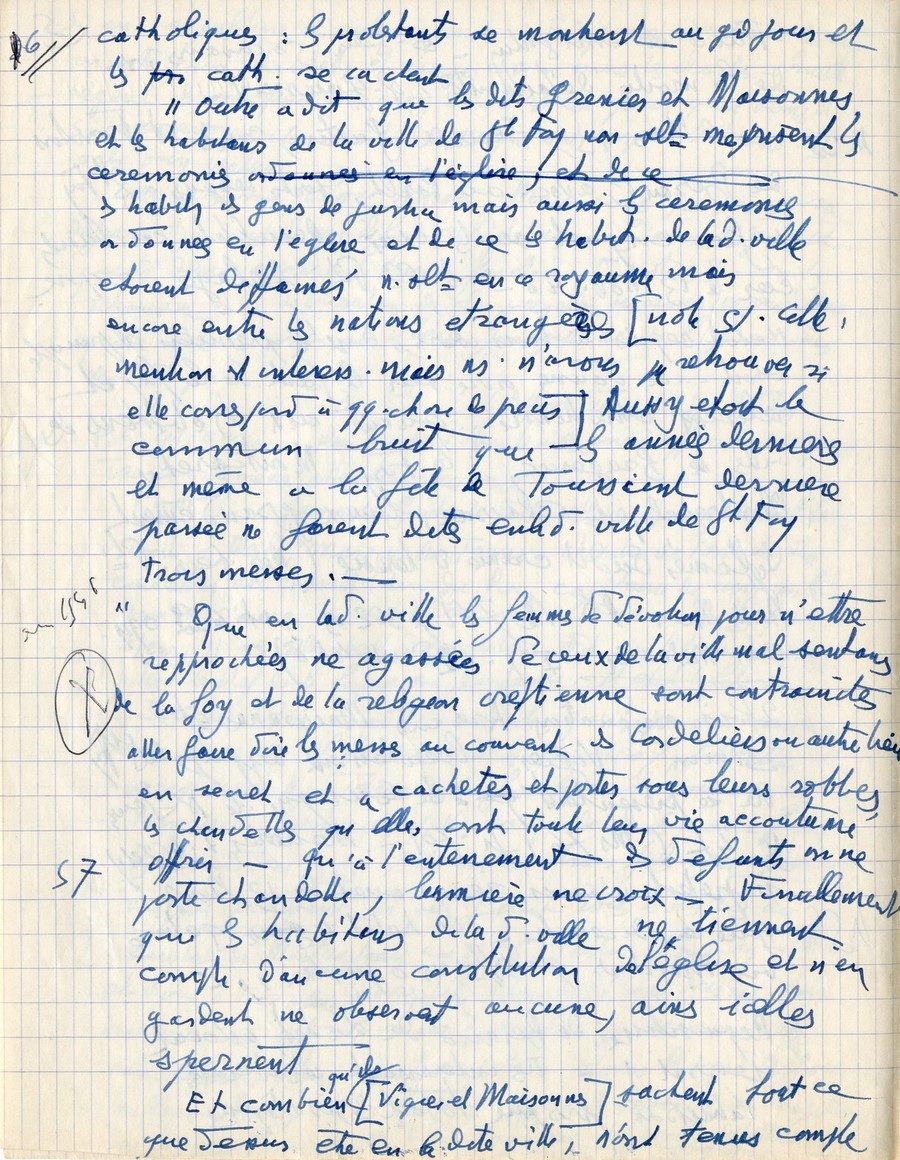 6// catholiques : ls protestants se montrent au gd jour et
les cath. se cachent
" Outre a dit que les dits Grenier et Maisonnes
et les habitans de la ville de St Foy non slt meprisent les
ceremonies ordonnes en l'église, et de ce
ds habits ds gens de justice mais aussi ls ceremonies
ordonnes en l'eglise et de ce les habit. de lad. ville
etoient diffamés n. slt en ce royaume mais
encore entre les nations etrangères [note cette
mention st interess. mais ns. n'avons pu retrouver si
elle correspond à qq. chose de precis] Aussy etoit le
commun bruit que ls année derniere
et même a la fête de Toussaint derniere
passée ne furent dites en lad. ville de St Foy
trois messes. —
" Que en lad. ville les femmes de dévotion pour n'ettre
repprochées ne agassées de ceux de la ville mal sentans
de la foy et de la religion crestienne sont contraintes
aller faire dire les messes au couvent ds Cordeliers ou autre lieu
en secret et cachetes et portes sous leurs robbes,
les chandelles qu'elles ont toute leur vie accoutumé
57 offrir — qu'à l'enterrement ds defunts on ne
porte chandelle, lumière ne croix — Finallement
que ls habitans de lad. ville ne tiennent
compte d'aucune constitution de l'église et n'en
gardent ne observent aucune, ains icelles
spernent
Et combien qu'ils [Vigier et Maisonns] sachent tout ce
que dessus etre en la dite ville, n'ont tenus compte